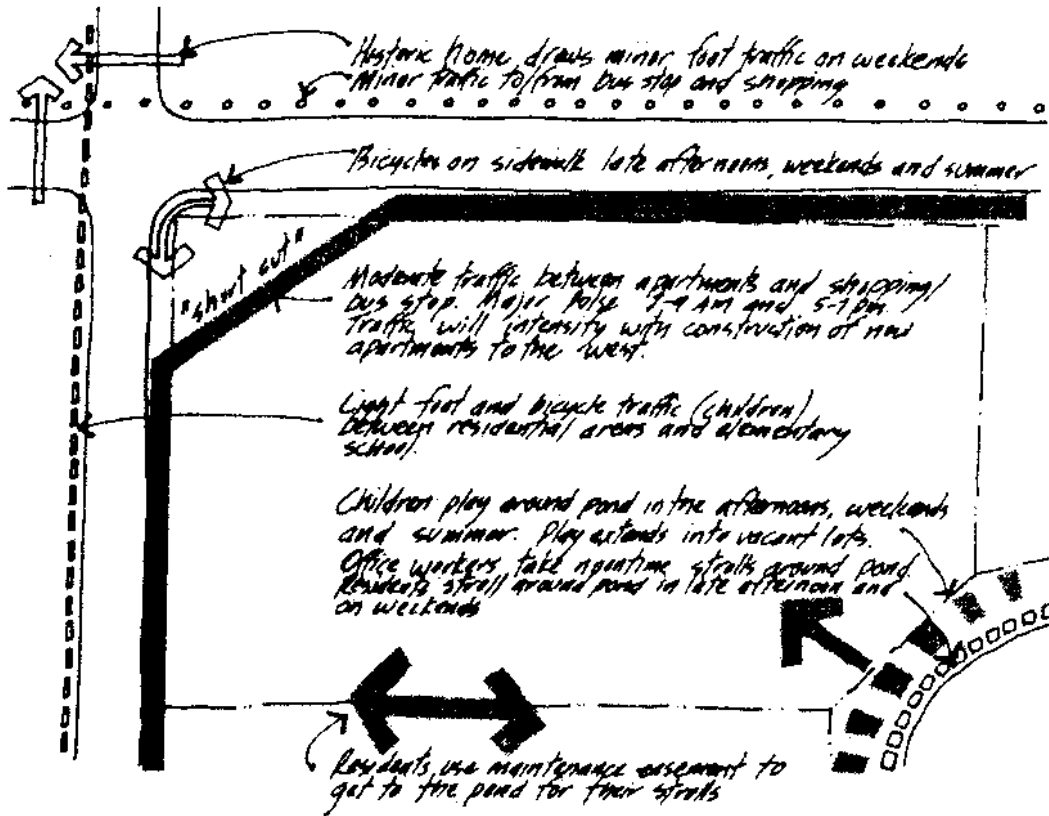 Historic home draws minor foot traffic on weekends
Minor traffic to/from bus stop and shopping
Bicycles on sidewalk late afternoons, weekends and summer
"short cut"
Moderate traffic between apartments and shopping/
bus stop. Major Pulse 7-9 AM and 5-7 pm.
Traffic will intensify with construction of new
apartments to the west.
Light foot and bicycle traffic (children)
between residential areas and elementary
school.
Children play around pond in the afternoons, weekends
and summer. Play extends into vacant lots.
Office workers take noontime strolls around pond
Residents stroll around pond in late afternoon and
on weekends
Residents use maintenance easement to
get to the pond for their strolls